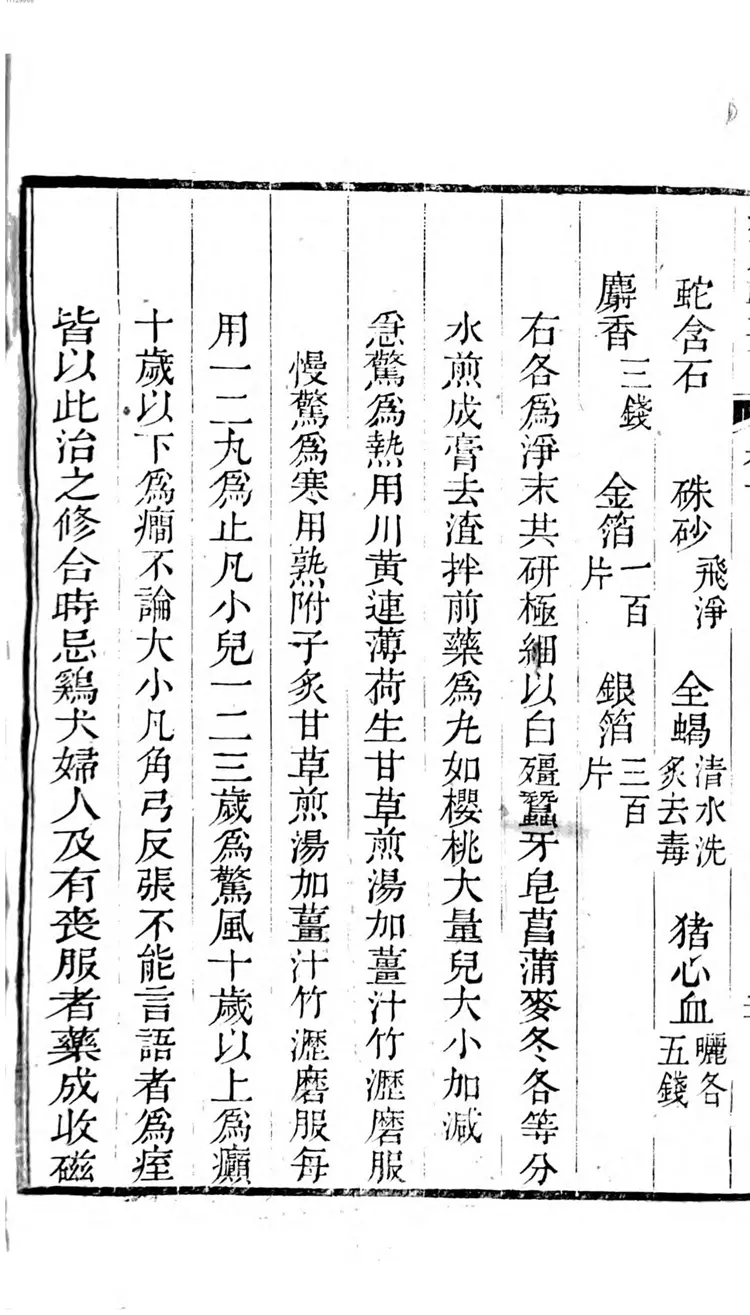 蛇含石　硃砂飛淨　全蝎清水洗炙去毒　猪心血曬各五錢
麝香三錢　金箔一百片　銀箔三百片
右各爲淨末共研極細以白殭蠶牙皂菖蒲麥冬各等分
水煎成膏去渣拌前藥爲丸如櫻桃大量兒大小加減
急驚爲熱用川黄連薄荷生甘草煎湯加薑汁竹瀝磨服
慢驚爲寒用熟附子炙甘草煎湯加薑汁竹瀝磨服每
用一二丸爲止凡小兒一二三歲爲驚風十歲以上爲癲
十歲以下爲癎不論大小凡角弓反張不能言語者爲痓
皆以此治之修合時忌鷄犬婦人及有喪服者藥成收磁